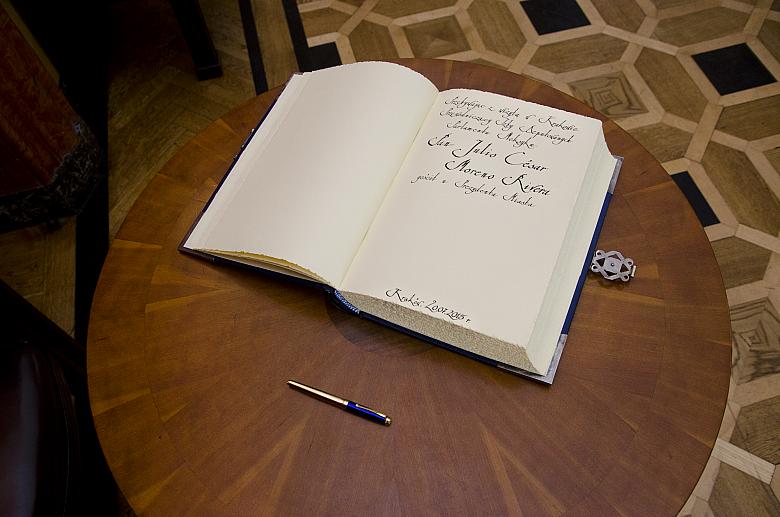 Przebywając z wizytą w Krakowie
Przewodniczący Izby Deputowanych
Parlamentu Meksyku
Julio César
Moreno Rivera
gościł u Prezydenta Miasta
Kraków, 20.07.2015 r.